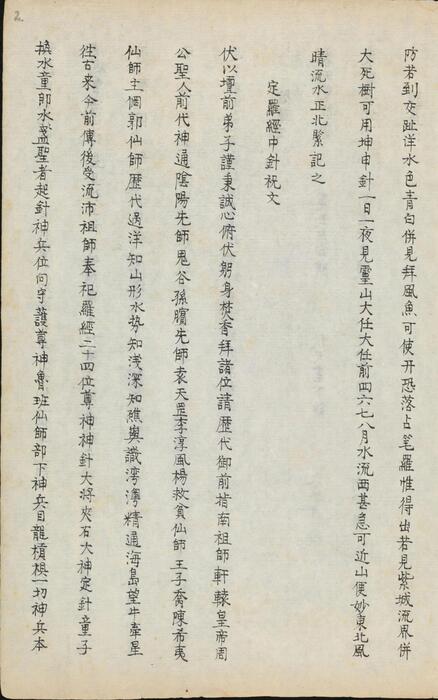 2
防若到交趾洋水色青白併見拜風魚可使開恐落占筆羅惟得出若見紫城流界併
大死樹可用坤申針一日一夜見靈山大任大任前四六七八月水流西甚急可近山便妙東北風
晴流水正北緊記之
定羅經中針祝文
伏以壇前弟子謹秉誠心俯伏躬身焚香拜請位請歷代御前指南祖師軒轅皇帝周
公聖人前代神通陰陽先師鬼谷孫臏先師袁天罡李淳風楊救貧仙師王子喬陳希夷
仙師主個郭仙師歷代過洋知山形水势知浅深知礁與識湾澳精通海島望斗牽星
徃古来今前傳後受流沛祖師奉祀羅經二十四位尊神神針大將夾石大神定針童子
換水童郎水盞聖者起針神兵位向守護尊神魯班仙師部下神兵目龍槓棋一切神兵本